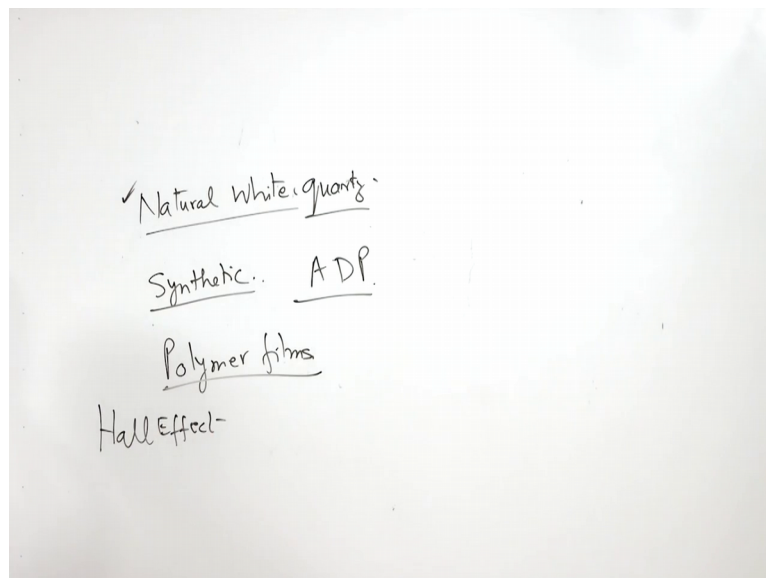 ✓Natural White quartz.
Synthetic.. ADP.
Polymer films
Hall Effect